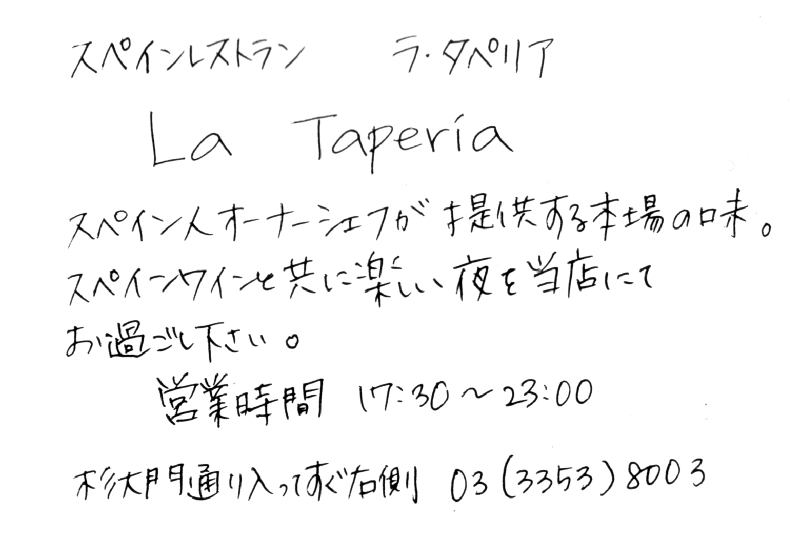 スペインレストラン ラ・タペリア
La Tapería
スペイン人オーナーシェフが提供する本場の味。
スペインワインと共に楽しい夜を当店にて
お過ごし下さい。
営業時間 17:30～23:00
杉大門通り入ってすぐ右側 03(3353)8003